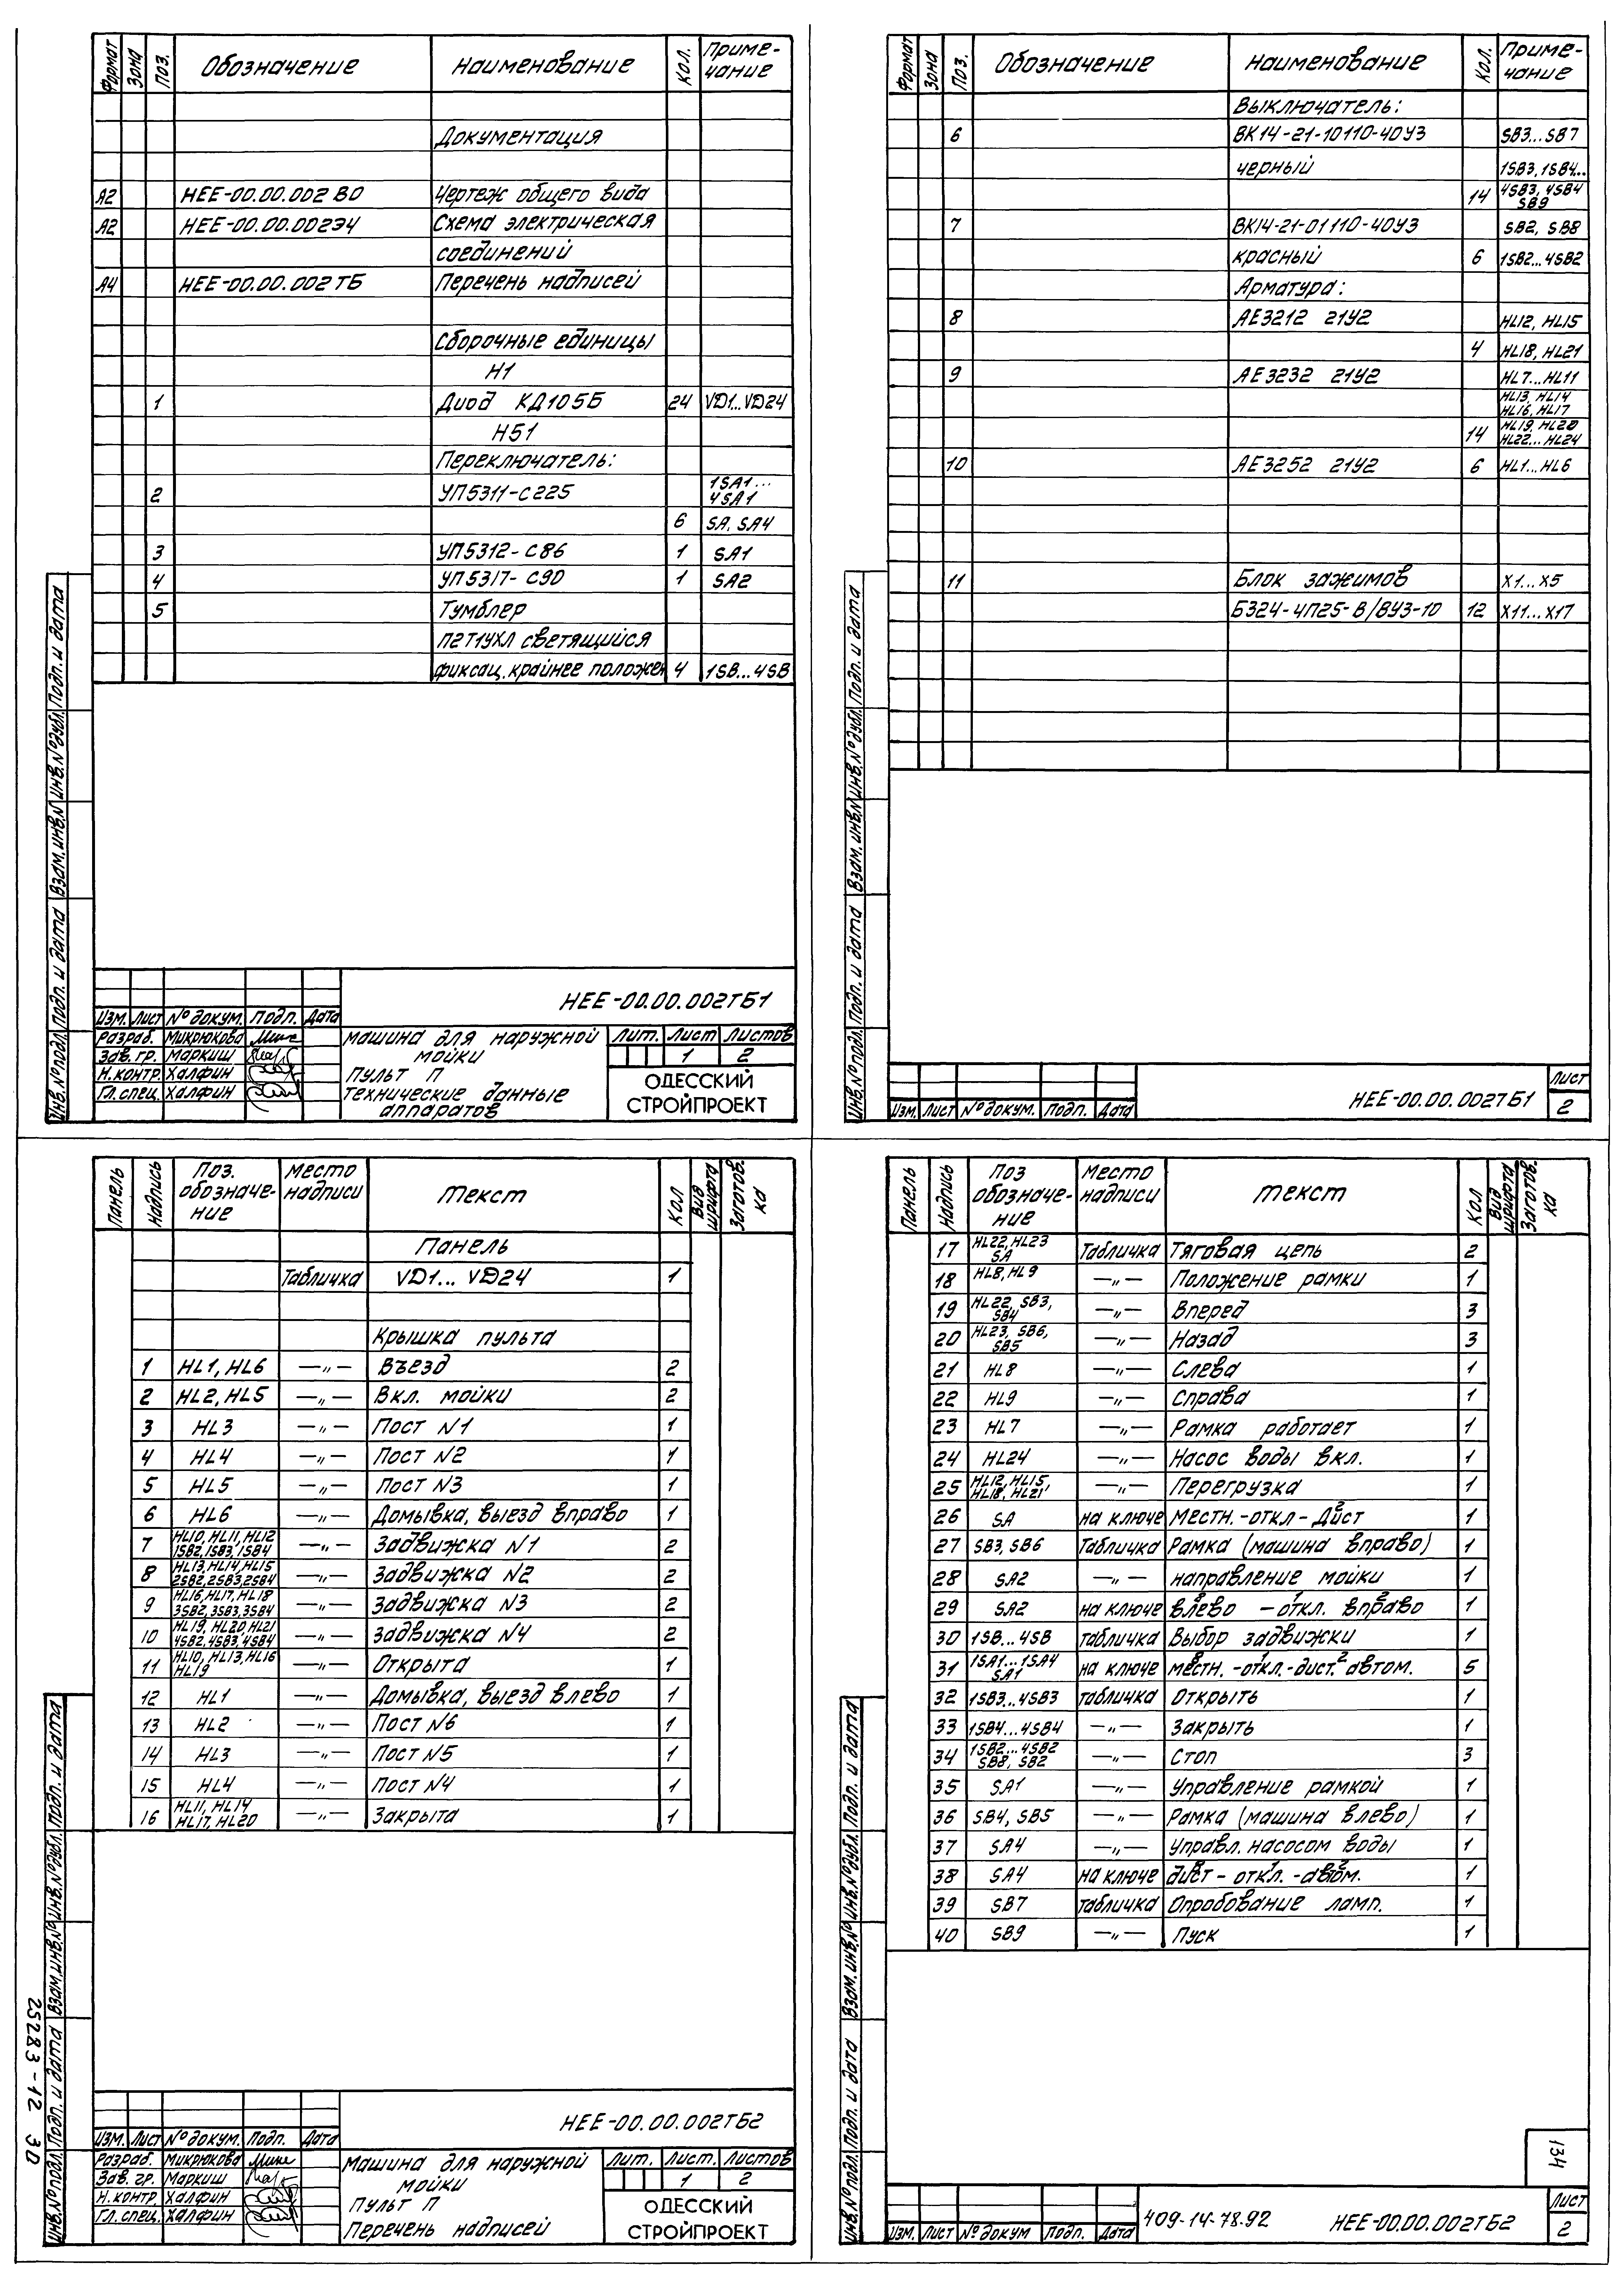 Формат Зона Поз. Обозначение Наименование Кол. Приме-
чание
Документация
А2 НЕЕ-00.00.002 ВО Чертеж общего вида
А2 НЕЕ-00.00.002Э4 Схема электрическая
соединений
А4 НЕЕ-00.00.002ТБ Перечень надписей
Сборочные единицы
Н1
1 Диод КД105Б 24 VD1...VD24
Н51
Переключатель:
2 УП5311-С225 1SA1...
4SA1
6 SA, SA4
3 УП5312-С86 1 SA1
4 УП5317-С90 1 SA2
5 Тумблер
П2Т1УХЛ светящийся
фиксац. крайнее положен 4 1SB...4SB
НЕЕ-00.00.002ТБ1
Изм. Лист № докум. Подп. Дата
Разраб. Микрюкова
Зав. гр. Маркиш
Н.контр. Халфин
Гл. спец. Халфин
Машина для наружной
мойки
Пульт П
Технические данные
аппаратов
Лит. Лист Листов
1 2
ОДЕССКИЙ
СТРОЙПРОЕКТ
Инв.№ подл. Подп. и дата Взам.инв.№ Инв.№ дубл. Подп. и дата
Формат Зона Поз. Обозначение Наименование Кол. Приме-
чание
Выключатель:
6 ВК14-21-10110-40У3 SB3...SB7
черный 1SB3, 1SB4...
14 4SB3, 4SB4
SB9
7 ВК14-21-01110-40У3 SB2, SB8
красный 6 1SB2...4SB2
Арматура:
8 АЕ3212 21У2 HL12, HL15
4 HL18, HL21
9 АЕ3232 21У2 HL7...HL11
HL13, HL14
HL16, HL17
14 HL19, HL20
HL22...HL24
10 АЕ3252 21У2 6 HL1...HL6
11 Блок зажимов X1...X5
БЗ24-4П25-В/ВУ3-10 12 X11...X17
Инв.№ подл. Подп. и дата Взам.инв.№ Инв.№ дубл. Подп. и дата
Изм. Лист № докум. Подп. Дата
НЕЕ-00.00.002ТБ1
Лист
2
Панель Надпись Поз.
обозначе-
ние Место
надписи Текст Кол Вид
шрифта Заготов.
ка
Панель
Табличка VD1...VD24 1
Крышка пульта
1 HL1, HL6 —„— Въезд 2
2 HL2, HL5 —„— Вкл. мойки 2
3 HL3 —„— Пост N1 1
4 HL4 —„— Пост N2 1
5 HL5 —„— Пост N3 1
6 HL6 —„— Домывка, выезд вправо 1
7 HL10, HL11, HL12
1SB2, 1SB3, 1SB4 —„— Задвижка N1 2
8 HL13, HL14, HL15
2SB2, 2SB3, 2SB4 —„— Задвижка N2 2
9 HL16, HL17, HL18
3SB2, 3SB3, 3SB4 —„— Задвижка N3 2
10 HL19, HL20, HL21
4SB2, 4SB3, 4SB4 —„— Задвижка N4 2
11 HL10, HL13, HL16
HL19 —„— Открыта 1
12 HL1 —„— Домывка, выезд влево 1
13 HL2 —„— Пост N6 1
14 HL3 —„— Пост N5 1
15 HL4 —„— Пост N4 1
16 HL11, HL14
HL17, HL20 —„— Закрыта 1
НЕЕ-00.00.002ТБ2
Изм. Лист № докум. Подп. Дата
Разраб. Микрюкова
Зав. гр. Маркиш
Н.контр. Халфин
Гл. спец. Халфин
Машина для наружной
мойки
Пульт П
Перечень надписей
Лит. Лист. Листов
1 2
ОДЕССКИЙ
СТРОЙПРОЕКТ
Инв.№ подл. Подп. и дата Взам.инв.№ Инв.№ дубл. Подп. и дата
25283-12 30
Панель Надпись Поз
обозначе-
ние Место
надписи Текст Кол Вид
шрифта Заготов.
ка
17 HL22, HL23
SA Табличка Тяговая цепь 2
18 HL8, HL9 —„— Положение рамки 1
19 HL22, SB3,
SB4 —„— Вперед 3
20 HL23, SB6,
SB5 —„— Назад 3
21 HL8 —„— Слева 1
22 HL9 —„— Справа 1
23 HL7 —„— Рамка работает 1
24 HL24 —„— Насос воды вкл. 1
25 HL12, HL15,
HL18, HL21 —„— Перегрузка 1
26 SA на ключе местн.-откл-дист 2 1
27 SB3, SB6 Табличка Рамка (машина вправо) 1
28 SA2 —„— направление мойки 1
29 SA2 на ключе влево — откл. вправо 1
30 1SB...4SB табличка Выбор задвижки 1
31 1SA1...1SA4
SA1 на ключе местн.-откл.-дист. автом. 5
32 1SB3...4SB3 табличка Открыть 1
33 1SB4...4SB4 —„— Закрыть 1
34 1SB2...4SB2
SB8, SB2 —„— Стоп 3
35 SA1 —„— Управление рамкой 1
36 SB4, SB5 —„— Рамка (машина влево) 1
37 SA4 —„— Управл. насосом воды 1
38 SA4 на ключе дист - откл. - автом. 1
39 SB7 табличка Опробование ламп. 1
40 SB9 —„— Пуск 1
Инв.№ подл. Подп. и дата Взам.инв.№ Инв.№ дубл. Подп. и дата
134
Изм. Лист № докум Подп. Дата
409-14-78.92
НЕЕ-00.00.002ТБ2
Лист
2